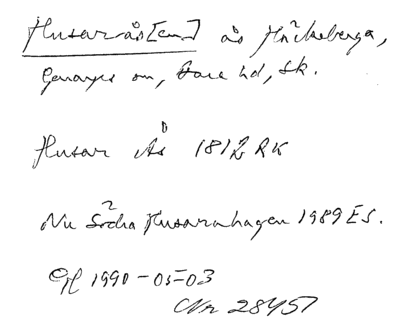 Husarås[en] ås Häckeberga,
Genarps sn, Bara hd, Sk.
Husar Ås 1812 RK
Nu Södra Husarahagen 1989 ES.
1990-05-03
Nr 28457